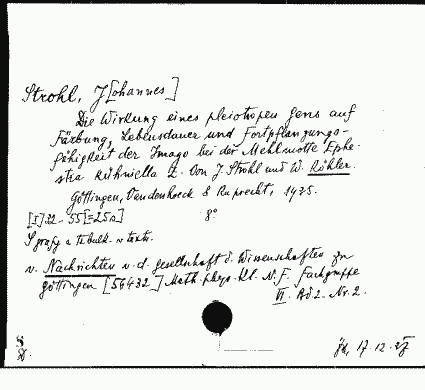 Strohl, J[ohannes]
Die Wirkung eines pleiotropen Gens auf
Färbung, Lebensdauer und Fortpflanzungs-
fähigkeit der Imago bei der Mehlmotte Ephe-
stia Kühniella Z. Von J. Strohl und W. Köhler.
Göttingen, Vandenhoeck & Ruprecht, 1935.
[I] 32-55 [=25 s] 8°
5 graf. a tabulk. v textu.
v. Nachrichten v. d. Gesellschaft d. Wissenschaften zu
Göttingen [56432] Math.-phys. Kl. N.F. Fachgruppe
VI. Bd. 2. Nr. 2.
17.12.37